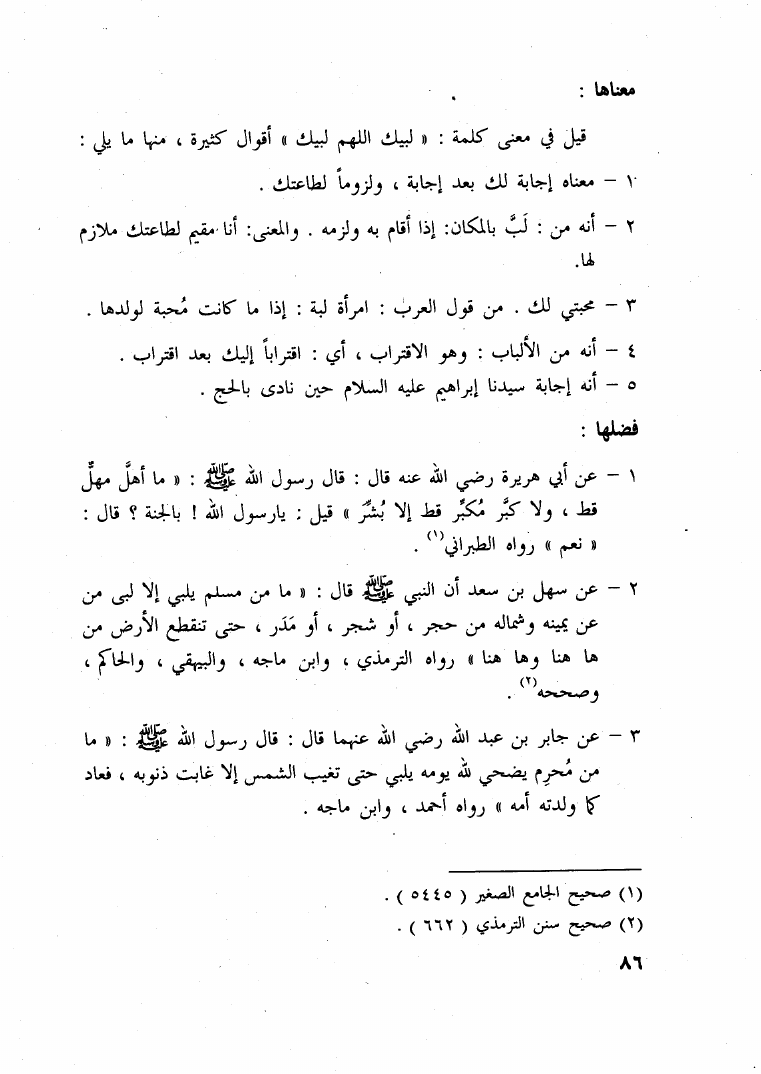 معناها :
قيل في معنى كلمة : « لبيك اللهم لبيك » أقوال كثيرة ، منها ما يلي :
١ – معناه إجابة لك بعد إجابة ، ولزوماً لطاعتك .
٢ – أنه من : لَبَّ بالمكان: إذا أقام به ولزمه . والمعنى: أنا مقيم لطاعتك ملازم
لها.
٣ – محبتي لك . من قول العرب : امرأة لبة : إذا ما كانت مُحبة لولدها .
٤ – أنه من الألباب : وهو الاقتراب ، أي : اقتراباً إليك بعد اقتراب .
٥ – أنه إجابة سيدنا إبراهيم عليه السلام حين نادى بالحج .
فضلها :
١ – عن أبي هريرة رضي الله عنه قال : قال رسول الله ﷺ : « ما أهلَّ مهلٌّ
قط ، ولا كبَّر مُكبِّر قط إلا بُشِّرَ » قيل : يارسول الله ! بالجنة ؟ قال :
« نعم » رواه الطبراني(١) .
٢ – عن سهل بن سعد أن النبي ﷺ قال : « ما من مسلم يلبي إلا لبى من
عن يمينه وشماله من حجر ، أو شجر ، أو مَدَر ، حتى تنقطع الأرض من
ها هنا وها هنا » رواه الترمذي ، وابن ماجه ، والبيهقي ، والحاكم ،
وصححه(٢) .
٣ – عن جابر بن عبد الله رضي الله عنهما قال : قال رسول الله ﷺ : « ما
من مُحرِم يضحي لله يومه يلبي حتى تغيب الشمس إلا غابت ذنوبه ، فعاد
كما ولدته أمه » رواه أحمد ، وابن ماجه .
(١) صحيح الجامع الصغير ( ٥٤٤٥ ) .
(٢) صحيح سنن الترمذي ( ٦٦٢ ) .
٨٦